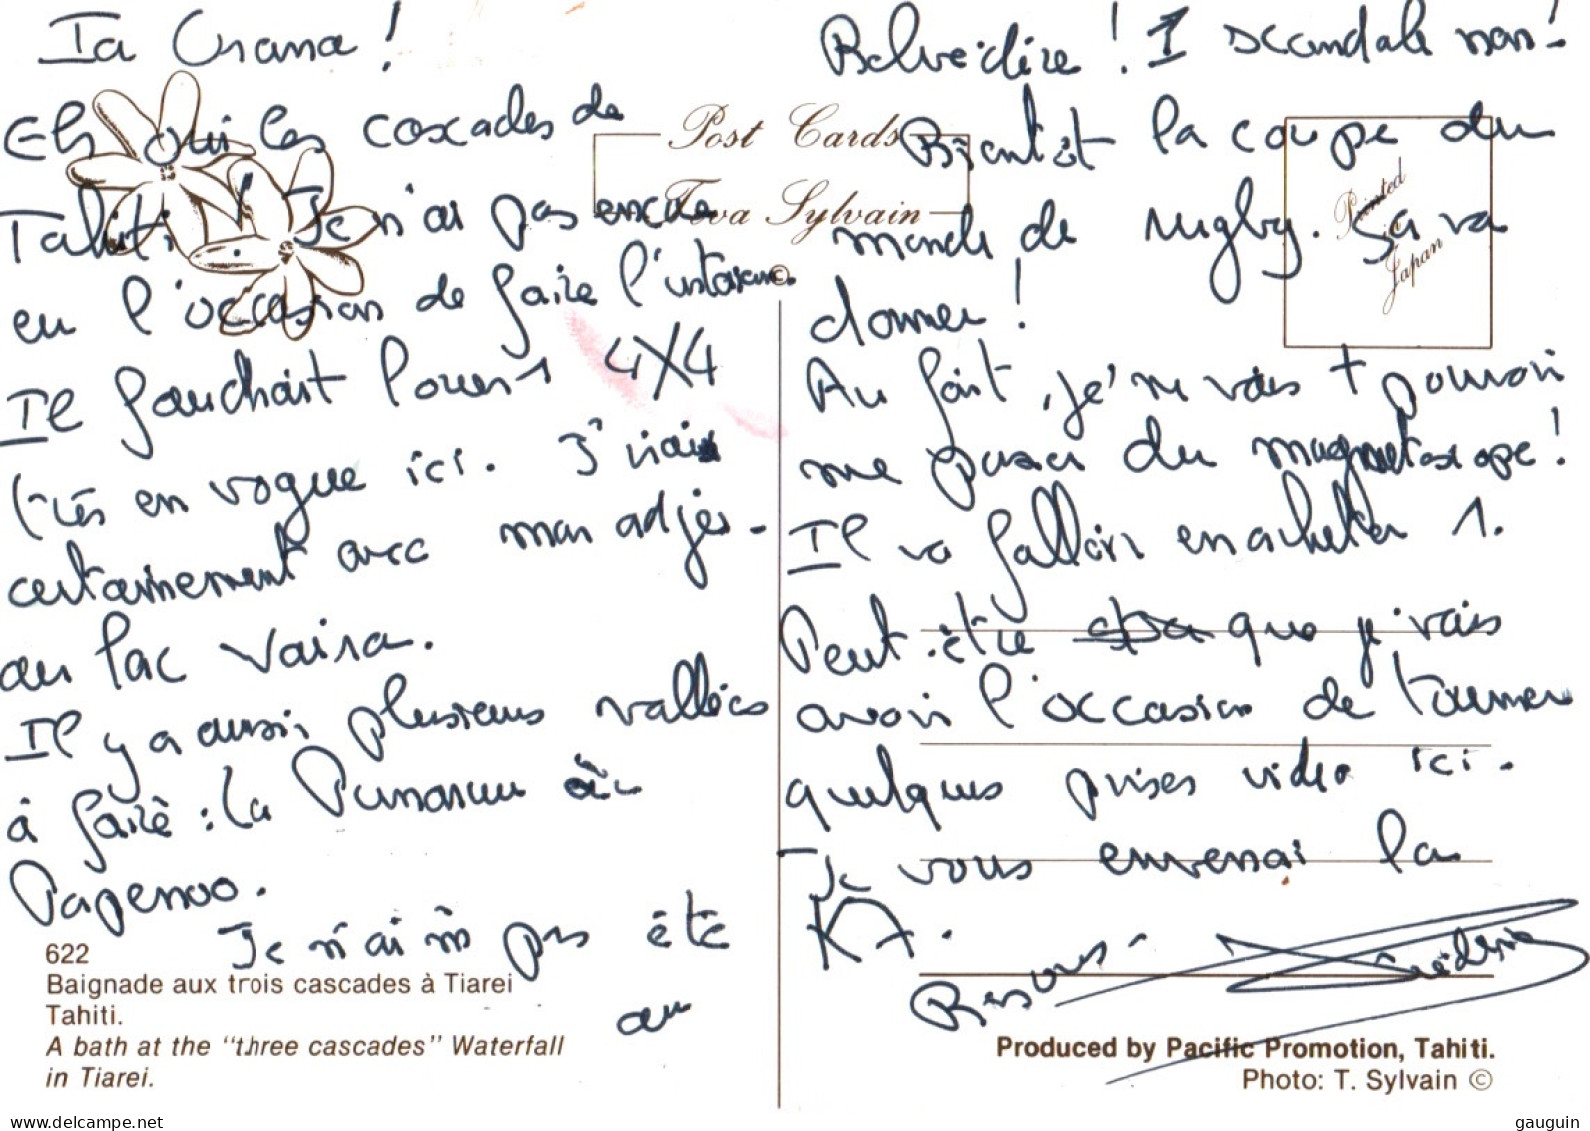 Ia Orana !
Eh oui les cascades de
Tahiti ! Je n'ai pas encore
eu l'occasion de faire
Il faudrait louer 1 4X4
(très en vogue ici. J'irai
certainement avec mon adjes-
au lac Vaira.
Il y a aussi plusieurs vallées
à faire : la Punaruu à
Papenoo.
Je n'ai pas été
au
622
Baignade aux trois cascades à Tiarei
Tahiti.
A bath at the "three cascades" Waterfall
in Tiarei.
Post Cards
Teva Sylvain
©
Printed
in
Japan
Belvédère ! 1 scandale non !
Bientôt la coupe du
monde de rugby. Ça va
donner !
Au fait, je ne vais + pouvoir
me passer du magnétoscope !
Il va falloir en acheter 1.
Peut-être que je vais
avoir l'occasion de tourner
quelques prises vidéo ici.
Je vous enverrai la
K7.
Bisous
Produced by Pacific Promotion, Tahiti.
Photo: T. Sylvain ©
delcampe.net
gauguin